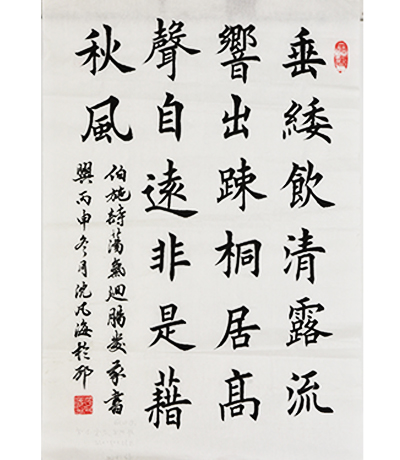 垂緌飲清露流
響出踈桐居高
聲自遠非是藉
秋風
伯施詩蕩氣迴腸
與丙申冬月沈凡海於邗